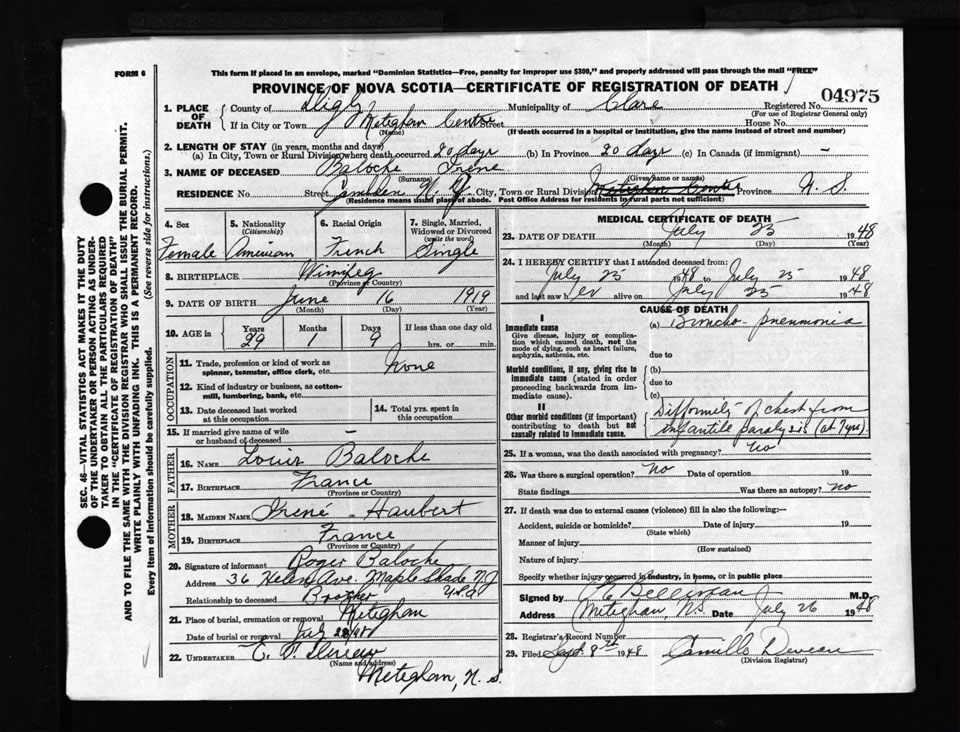 FORM 6
This form if placed in an envelope, marked "Dominion Statistics—Free, penalty for improper use $300," and properly addressed will pass through the mail "FREE"
PROVINCE OF NOVA SCOTIA—CERTIFICATE OF REGISTRATION OF DEATH
04975
1. PLACE OF DEATH
County of Digby Municipality of Clare Registered No.
(For use of Registrar General only)
If in City or Town Meteghan Centre Street House No.
(Name) (If death occurred in a hospital or institution, give the name instead of street and number)
2. LENGTH OF STAY (in years, months and days)
(a) In City, Town or Rural Division where death occurred 20 days (b) In Province 20 days (c) In Canada (if immigrant) —
3. NAME OF DECEASED Baloche Irene
(Surname) (Given name or names)
RESIDENCE No. Street Camden N. J. City, Town or Rural Division Meteghan Centre Province N. S.
(Residence means usual place of abode. Post Office Address for residents in rural parts not sufficient)
4. Sex 5. Nationality (Citizenship) 6. Racial Origin 7. Single, Married, Widowed or Divorced (write the word)
Female American French Single
8. BIRTHPLACE Winnipeg
(Province or Country)
9. DATE OF BIRTH June 16 1919
(Month) (Day) (Year)
10. AGE in Years Months Days If less than one day old
29 1 9 hrs. or min.
OCCUPATION
11. Trade, profession or kind of work as spinner, teamster, office clerk, etc. None
12. Kind of industry or business, as cotton-mill, lumbering, bank, etc.
13. Date deceased last worked at this occupation
14. Total yrs. spent in this occupation
15. If married give name of wife or husband of deceased —
FATHER
16. NAME Louis Baloche
17. BIRTHPLACE France
(Province or Country)
MOTHER
18. MAIDEN NAME Irené - Haubert
19. BIRTHPLACE France
(Province or Country)
20. Signature of informant Roger Baloche
Address 36 Helen Ave. Maple Shade N J
Relationship to deceased Brother U.S.A
21. Place of burial, cremation or removal Meteghan
Date of burial or removal July 28/48
22. UNDERTAKER
(Name and address)
Meteghan, N. S.
MEDICAL CERTIFICATE OF DEATH
23. DATE OF DEATH July 25 1948
(Month) (Day) (Year)
24. I HEREBY CERTIFY that I attended deceased from:
July 25 1948 to July 25 1948
and last saw her alive on July 25 1948
CAUSE OF DEATH
I
Immediate cause
Give disease, injury or complication which caused death, not the mode of dying, such as heart failure, asphyxia, asthenia, etc.
(a) Broncho-pneumonia
due to
Morbid conditions, if any, giving rise to immediate cause (stated in order proceeding backwards from immediate cause).
(b)
due to
(c)
II
Other morbid conditions (if important) contributing to death but not causally related to immediate cause.
Difformity of chest from
infantile paralysis (at 7 yrs)
25. If a woman, was the death associated with pregnancy? No
26. Was there a surgical operation? No Date of operation 19
State findings Was there an autopsy? No
27. If death was due to external causes (violence) fill in also the following:—
Accident, suicide or homicide? Date of injury 19
(State which)
Manner of injury
(How sustained)
Nature of injury
Specify whether injury occurred in industry, in home, or in public place
Signed by Belliveau M.D.
Address Meteghan, N.S. Date July 26 1948
28. Registrar's Record Number
29. Filed Sept. 8th 1948 Camille Deveau
(Division Registrar)
SEC. 46—VITAL STATISTICS ACT MAKES IT THE DUTY
OF THE UNDERTAKER OR PERSON ACTING AS UNDERTAKER
TO OBTAIN ALL THE PARTICULARS REQUIRED
IN THE "CERTIFICATE OF REGISTRATION OF DEATH"
AND TO FILE THE SAME WITH THE DIVISION REGISTRAR WHO SHALL ISSUE THE BURIAL PERMIT.
WRITE PLAINLY WITH UNFADING INK. THIS IS A PERMANENT RECORD.
Every item of information should be carefully supplied. (See reverse side for instructions.)